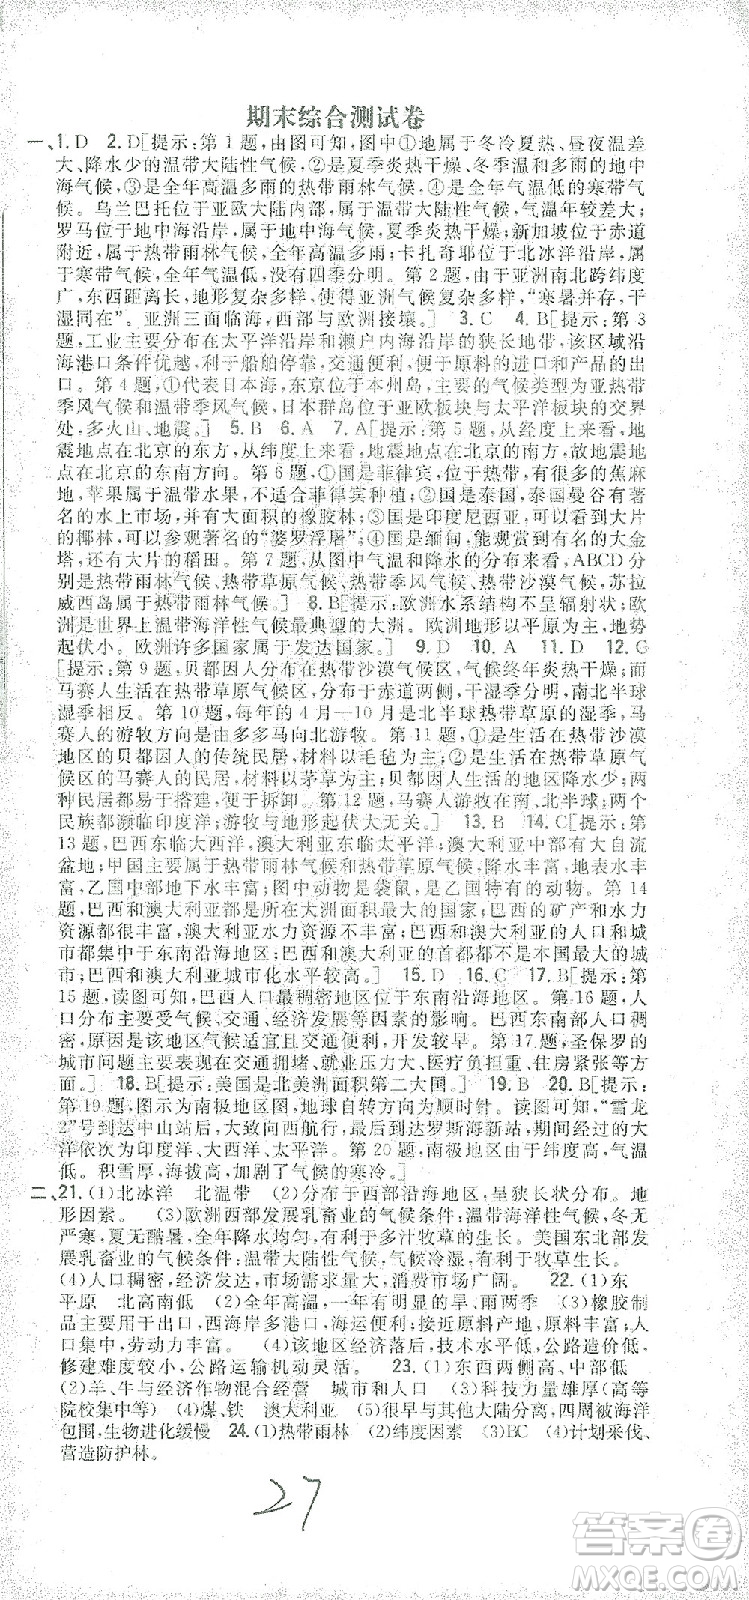 期末综合测试卷
一、1.D 2.D[提示:第1题,由图可知,图中①地属于冬冷夏热、昼夜温差
大、降水少的温带大陆性气候;②是夏季炎热干燥、冬季温和多雨的地中
海气候;③是全年高温多雨的热带雨林气候;④是全年气温低的寒带气
候。乌兰巴托位于亚欧大陆内部,属于温带大陆性气候,气温年较差大;
罗马位于地中海沿岸,属于地中海气候,夏季炎热干燥;新加坡位于赤道
附近,属于热带雨林气候,全年高温多雨;卡扎奇耶位于北冰洋沿岸,属
于寒带气候,全年气温低,没有四季分明。第2题,由于亚洲南北跨纬度
广,东西距离长,地形复杂多样,使得亚洲气候复杂多样,“寒暑并存,干
湿同在”。亚洲三面临海,西部与欧洲接壤。] 3.C 4.B[提示:第3
题,工业主要分布在太平洋沿岸和濑户内海沿岸的狭长地带,该区域沿
海港口条件优越,利于船舶停靠,交通便利,便于原料的进口和产品的出
口。第4题,①代表日本海,东京位于本州岛,主要的气候类型为亚热带
季风气候和温带季风气候,日本群岛位于亚欧板块与太平洋板块的交界
处,多火山、地震。] 5.B 6.A 7.A[提示:第5题,从经度来看,地震
地点在北京的东方,从纬度来看,地震地点在北京的南方,故地震地点
在北京的东南方向。第6题,①国是菲律宾,位于热带,有名的蕉麻
地,苹果属于温带水果,不适合菲律宾种植;②国是泰国,泰国曼谷有著
名的水上市场,并有大面积的橡胶林;③国是印度尼西亚,可以看到大片
的椰林,可以参观著名的“婆罗浮屠”;④国是缅甸,能观赏到有名的大金
塔,还有大片的稻田。第7题,从图中气温和降水的分布来看,ABCD分
别是热带雨林气候、热带草原气候、热带季风气候、热带沙漠气候,苏拉
威西岛属于热带雨林气候。] 8.B[提示:欧洲水系结构不呈辐射状;欧
洲是世界上温带海洋性气候最典型的大洲。欧洲地形以平原为主,地势
起伏小。欧洲许多国家属于发达国家。] 9.D 10.A 11.D 12.C
[提示:第9题,贝都因人分布在热带沙漠气候区,气候终年炎热干燥;而
马赛人生活在热带草原气候区,分布于赤道两侧,干湿季明显,南北半球
湿季相反。第10题,每年的4月—10月是北半球热带草原的湿季,马
赛人的游牧方向是由多多马向北游牧。第11题,①是生活在热带沙漠
地区的贝都因人的传统民居,材料以毛毡为主;②是生活在热带草原气
候区的马赛人的民居,材料以茅草为主;贝都因人生活的地区降水少;两
种民居都易于搭建,便于拆卸。第12题,马赛人游牧在南、北半球;两个
民族都濒临印度洋;游牧与地形起伏大无关。] 13.B 14.C[提示:第
13题,巴西东临大西洋,澳大利亚东临太平洋;澳大利亚中部有大自流
盆地;甲国主要属于热带雨林气候和热带草原气候,降水丰富,地表水丰
富,乙国中部地下水丰富;图中动物是袋鼠,是乙国特有的动物。第14
题,巴西和澳大利亚都是所在大洲面积最大的国家;巴西的矿产和水力
资源都很丰富,澳大利亚水力资源不丰富;巴西和澳大利亚的人口与城
市大都集中于东南沿海地区,但首都不是本国最大的城市;以上数据表
明巴西和澳大利亚城市化水平较高。] 15.D 16.C 17.B[提示:第
15题,读图可知,巴西人口最稠密地区位于东南沿海地区。第16题,人
口分布主要受气候、交通、经济发展等因素的影响。巴西东南部人口密
度大,原因是该地区气候适宜且交通便利,开发较早。第17题,圣保罗的
城市问题主要表现在交通拥堵、就业压力大、医疗负担重、住房紧张等方
面。] 18.B[提示:美国是北美洲面积第二大国。] 19.B 20.B[提示:
第19题,图示为南极地区图,地球自转方向为顺时针。读图可知,“雪龙
2”号到达中山站后,大致向西航行,最后到达罗斯海新站,期间经过的大
洋依次为印度洋、大西洋、太平洋。第20题,南极地区由于纬度高,气温
低。积雪厚,海拔高,加剧了气候的寒冷。]
二、21.(1)北冰洋 北温带 (2)分布于西部沿海地区,呈狭长状分布。地
形因素。 (3)欧洲西部发展乳畜业的气候条件:温带海洋性气候,冬无
严寒,夏无酷暑,全年降水均匀,有利于多汁牧草的生长。美国东北部发
展乳畜业的气候条件:温带大陆性气候,气候冷湿,有利于牧草生长。
(4)人口稠密,经济发达,市场需求量大,消费市场广阔。 22.(1)东
平原 北高南低 (2)全年高温,一年有明显的旱、雨两季 (3)橡胶制
品主要用于出口,西南沿海多港口,海运便利;接近原料产地,原料丰富;人
口集中,劳动力丰富。 (4)该地区经济落后,技术水平低,公路造价低,
修建难度较小,公路运输机动灵活。 23.(1)东西两侧高、中部低
(2)羊、牛与经济作物混合经营 城市和人口 (3)科技力量雄厚(高等
院校集中等) (4)煤、铁 澳大利亚 (5)很早与其他大陆分离,四周被海洋
包围,生物进化缓慢 24.(1)热带雨林 (2)纬度因素 (3)BC (4)计划采伐、
营造防护林。
27
答案圈
MXQE.COM